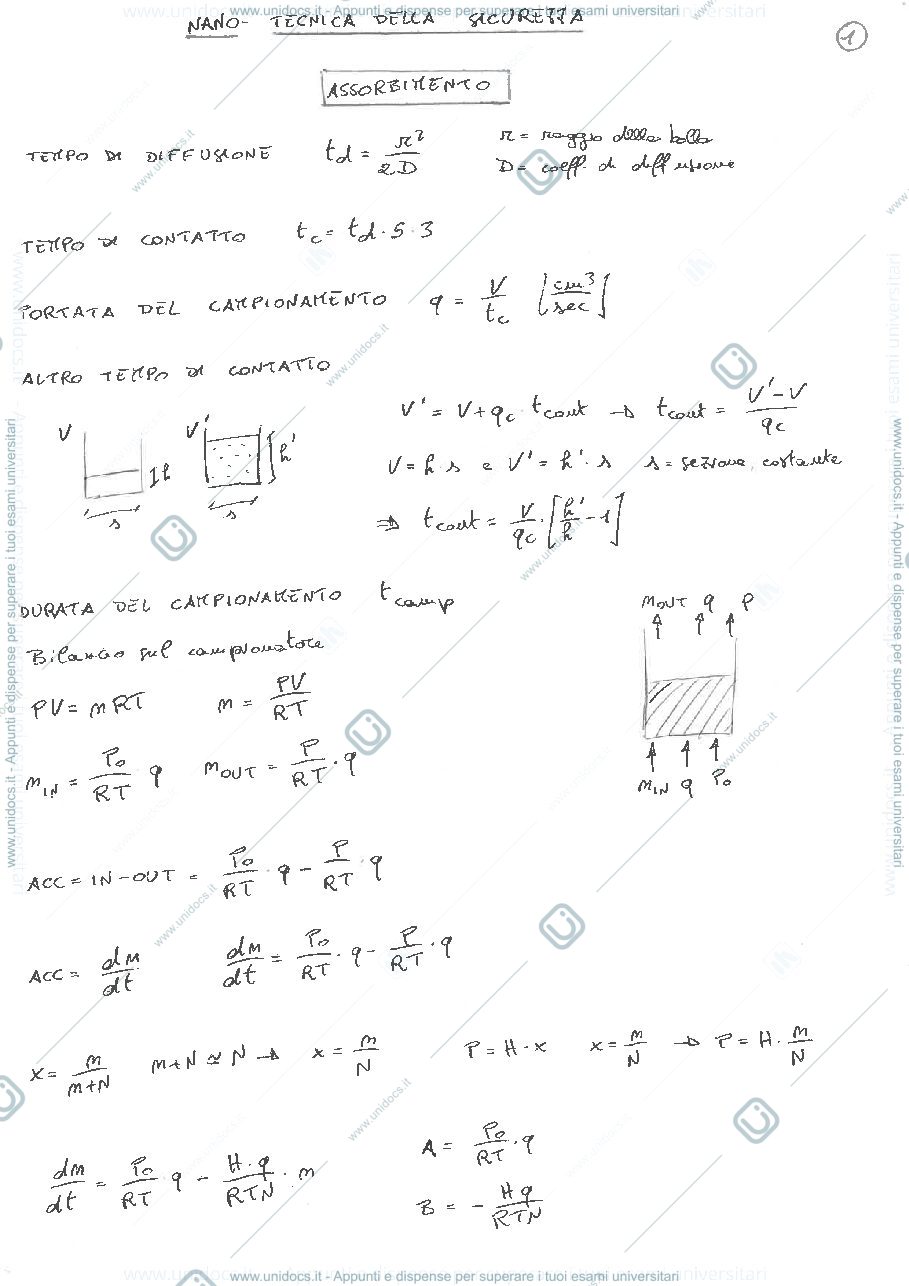 www.unidocs.it - Appunti e dispense per superare i tuoi esami universitari
NANO- TECNICA DELLA SICUREZZA
1
ASSORBIMENTO
TEMPO DI DIFFUSIONE t_d = r²/2D r = raggio della bolla
D = coeff. di diffusione
TEMPO DI CONTATTO t_c = t_d · 5 · 3
PORTATA DEL CAMPIONAMENTO q = V/t_c [cm³/sec]
ALTRO TEMPO DI CONTATTO
V V' h h' s s
V' = V + q_c · t_cont → t_cont = (V' - V)/q_c
V = h · s e V' = h' · s s = sezione, costante
⇒ t_cont = V/q_c · [h'/h - 1]
DURATA DEL CAMPIONAMENTO t_camp
Bilancio sul campionatore
m_OUT q P
PV = nRT n = PV/RT
n_IN = P_0/RT q n_OUT = P/RT · q
m_IN q P_0
ACC = IN - OUT = P_0/RT · q - P/RT · q
ACC = dn/dt dn/dt = P_0/RT · q - P/RT · q
x = n/(n+N) n+N ≅ N → x = n/N P = H · x x = n/N → P = H · n/N
A = P_0/RT · q
dn/dt = P_0/RT q - H·q/RTN · n
B = - Hq/RTN
www.unidocs.it - Appunti e dispense per superare i tuoi esami universitari